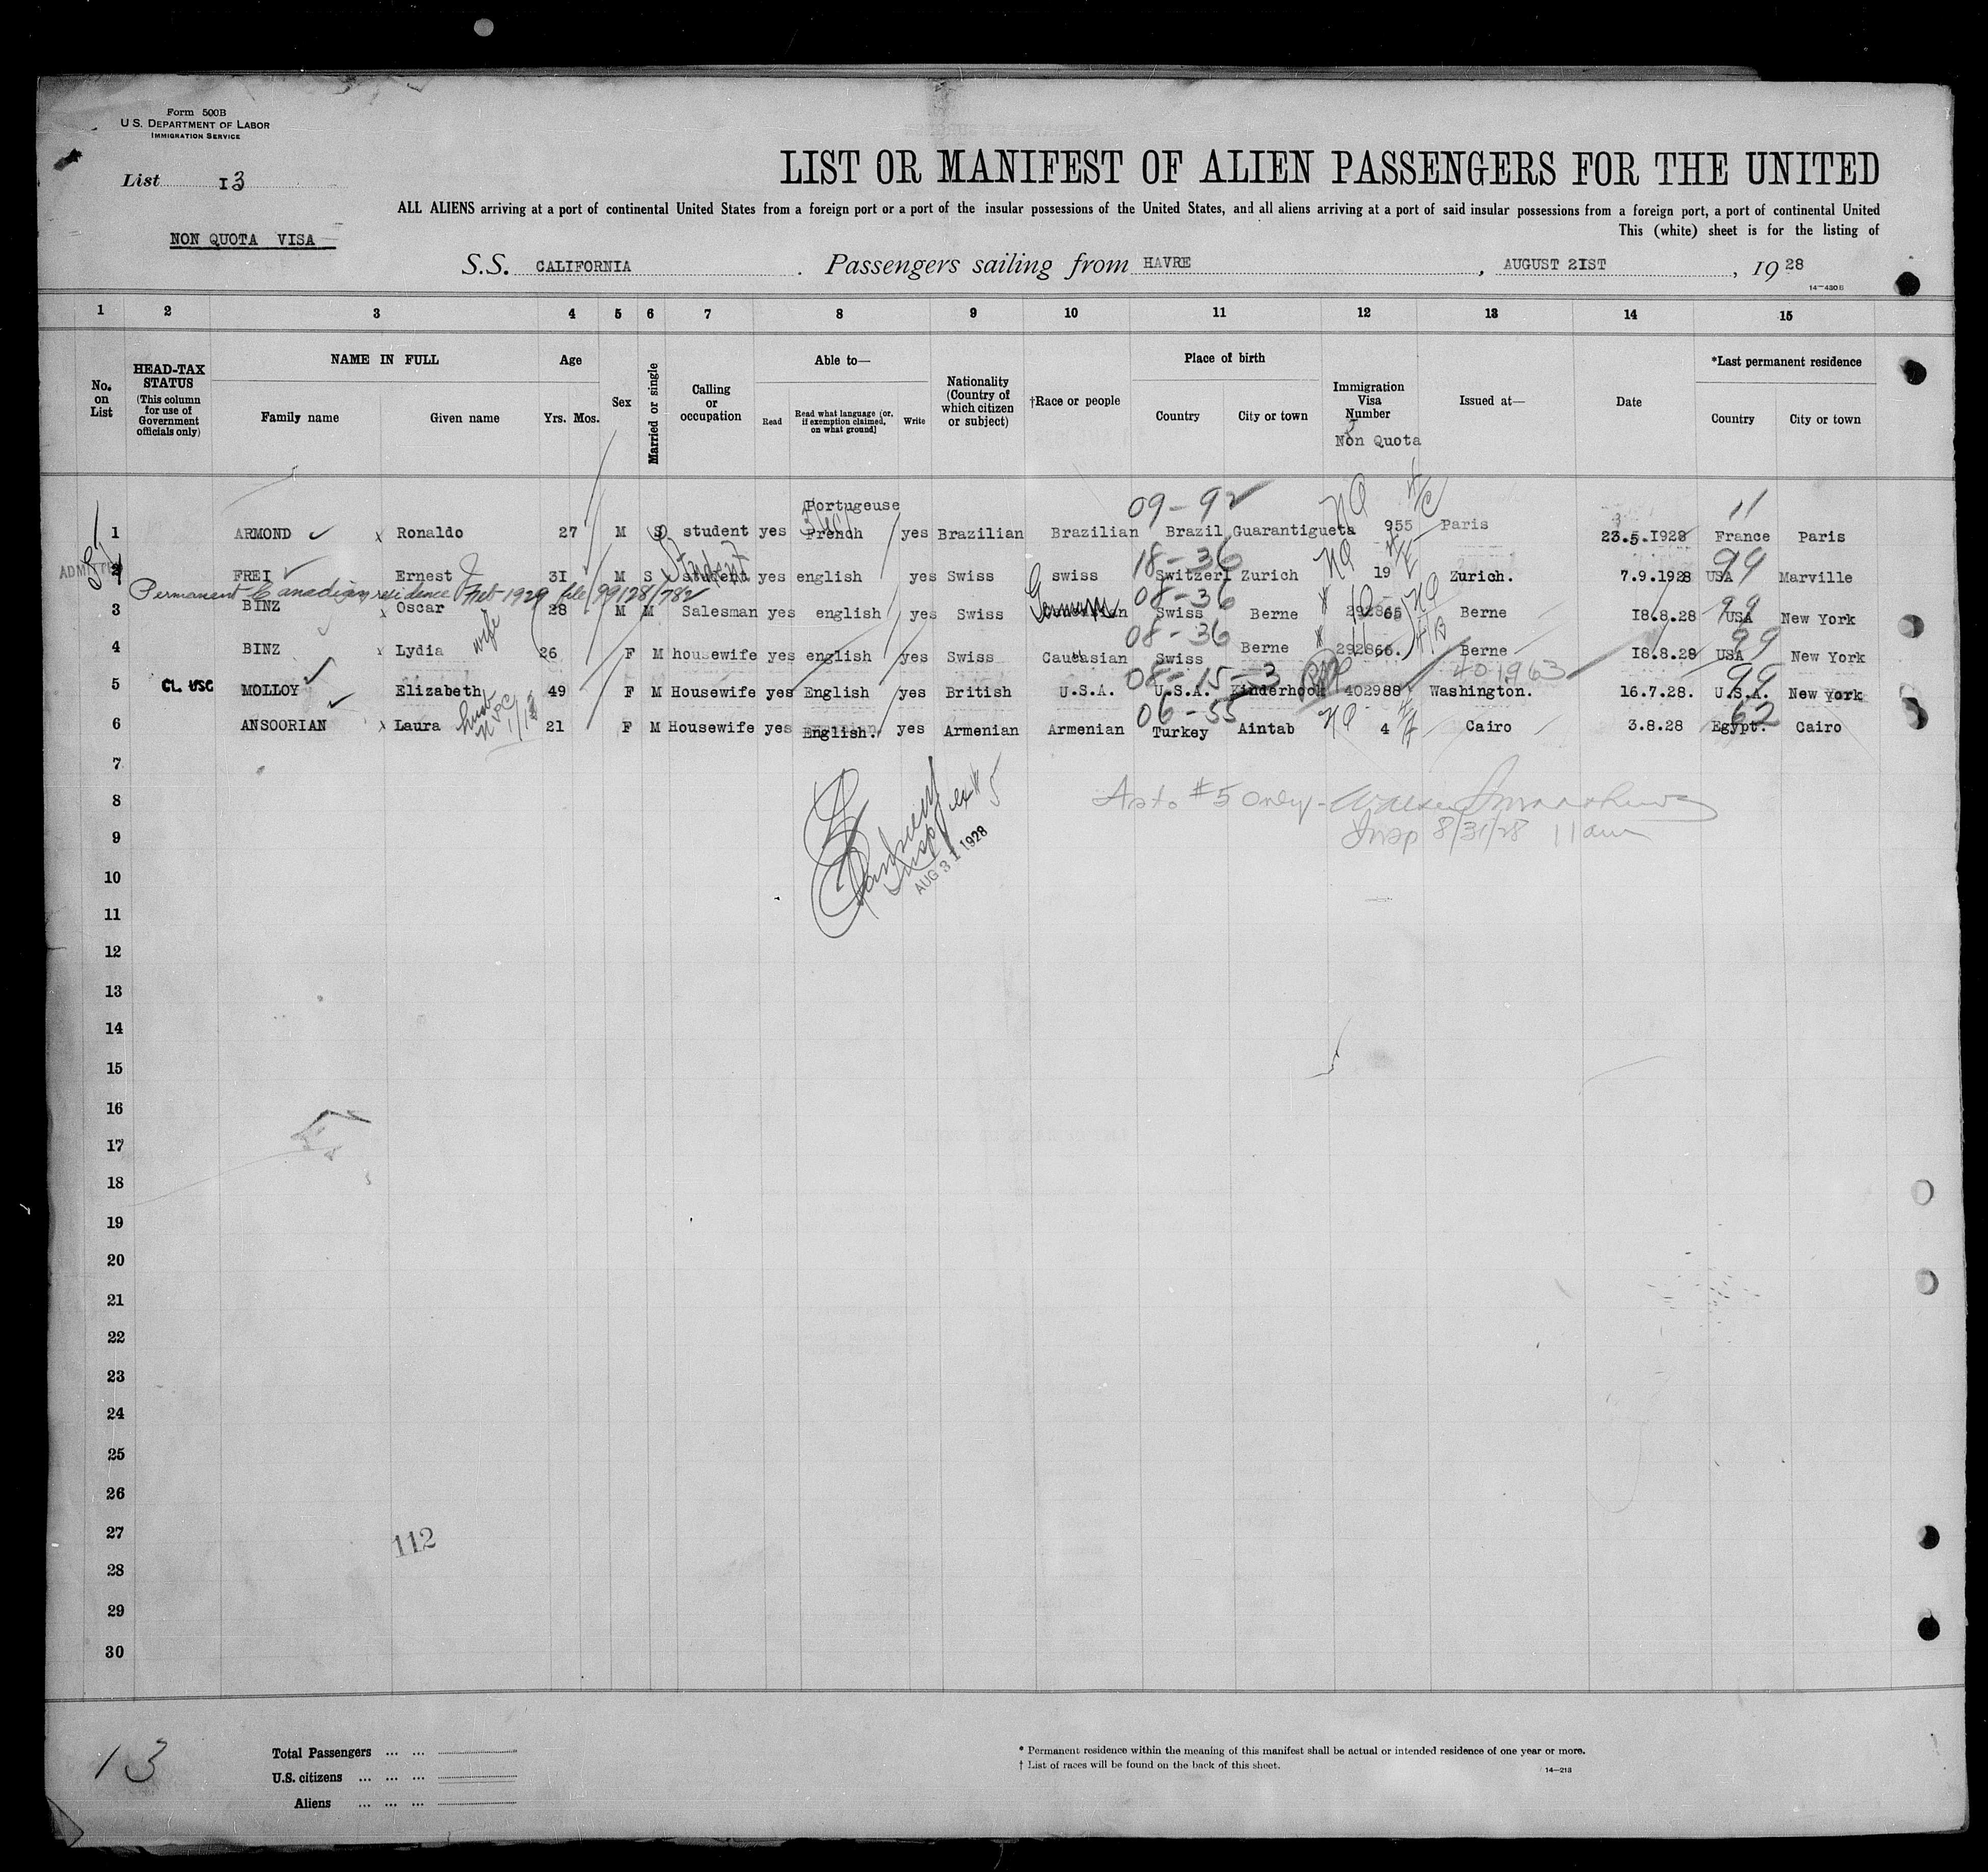 Form 500B
U.S. DEPARTMENT OF LABOR
IMMIGRATION SERVICE
List 13
LIST OR MANIFEST OF ALIEN PASSENGERS FOR THE UNITED
ALL ALIENS arriving at a port of continental United States from a foreign port or a port of the insular possessions of the United States, and all aliens arriving at a port of said insular possessions from a foreign port, a port of continental United
This (white) sheet is for the listing of
NON QUOTA VISA
S.S. CALIFORNIA . Passengers sailing from HAVRE , AUGUST 21ST , 19 28
14—480B
1 2 3 4 5 6 7 8 9 10 11 12 13 14 15
No. on List
HEAD-TAX STATUS (This column for use of Government officials only)
NAME IN FULL
Family name Given name
Age
Yrs. Mos.
Sex
Married or single
Calling or occupation
Able to—
Read Read what language [or, if exemption claimed, on what ground] Write
Nationality (Country of which citizen or subject)
†Race or people
Place of birth
Country City or town
Immigration Visa Number
Non Quota
Issued at—
Date
*Last permanent residence
Country City or town
Portugeuse 09-92 NQ 4/C 11
1 ARMOND x Ronaldo 27 M S student yes French yes Brazilian Brazilian Brazil Guarantigueta 955 Paris 23.5.1928 France Paris
ADMITTED Student 18-36 NQ 99
2 FREI Ernest 31 M S student yes english yes Swiss swiss Switzerl Zurich 19 Zurich. 7.9.1928 USA Marville
Permanent Canadian residence Feb 1929 file 99128/782
08-36 NQ 99
3 BINZ x Oscar 28 M M Salesman yes english yes Swiss German Swiss Berne 292865 Berne 18.8.28 USA New York
wife 08-36 4/B 99
4 BINZ x Lydia 26 F M housewife yes english yes Swiss Caucasian Swiss Berne 292866. Berne 18.8.28 USA New York
08-15-3 401963 99
5 CL. USC MOLLOY Elizabeth 49 F M Housewife yes English yes British U.S.A. U.S.A. Kinderhook 402988 Washington. 16.7.28. U.S.A. New York
06-55 NQ 62
6 ANSOORIAN x Laura 21 F M Housewife yes English. yes Armenian Armenian Turkey Aintab 4 Cairo 3.8.28 Egypt. Cairo
7
8
As to #5 only-
9
Insp 8/31/28 11 am
Insp ex # 5
AUG 31 1928
10
11
12
13
14
15
16
17
18
19
20
21
22
23
24
25
26
27
112
28
29
30
13
Total Passengers
U.S. citizens
Aliens
* Permanent residence within the meaning of this manifest shall be actual or intended residence of one year or more.
† List of races will be found on the back of this sheet.
14—213